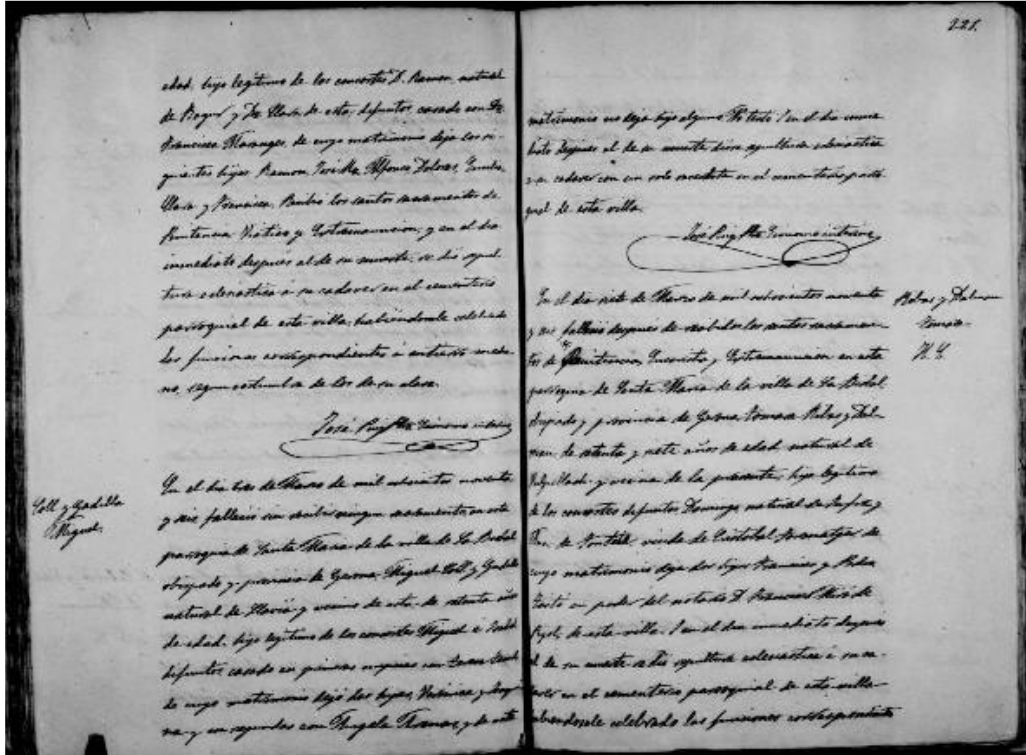 edad, hijo legítimo de los consortes D. Ramon, natural
de Bagur y Dª Clara de esta, difuntos, casado con Dª
Francisca, de cuyo matrimonio deja los si-
guientes hijos Ramon, José Mª, Alfonso, Dolores, Emilia,
Clara y Francisca. Recibió los santos sacramentos de
Penitencia Viático y Extremauncion, y en el dia
inmediato después al de su muerte, se dió sepul-
tura eclesiástica a su cadaver en el cementerio
parroquial de esta villa, habiéndosele celebrado
las funciones correspondientes á entierro media-
no, segun costumbre de los de su clase.
José Puig Pbro Ecónomo interino
Coll y
Miguel.
En el dia tres de Marzo de mil ochocientos noventa
y seis falleció sin recibir ningun sacramento en esta
parroquia de Santa Maria de la villa de La Bisbal
obispado y provincia de Gerona Miguel Coll y
natural de Llaviá y vecino de esta, de setenta años
de edad, hijo legítimo de los consortes Miguel é
difuntos, casado en primeras nupcias con
de cuyo matrimonio dejó dos hijas, y
y en segundas con Angela y de este
221.
matrimonio no deja hijo alguno No testó y en el dia inme-
diato después al de su muerte dióse sepultura eclesiástica
a su cadaver con un solo sacerdote en el cementerio parro-
quial de esta villa.
José Puig Pbro Ecónomo interino
y Dalmau
Tomasa
En el dia siete de Marzo de mil ochocientos noventa
y seis falleció después de recibidos los santos sacramen-
tos de Penitencia, Eucaristia y Extremauncion en esta
parroquia de Santa Maria de la villa de La Bisbal
obispado y provincia de Gerona Tomasa y Dal-
mau de setenta y siete años de edad natural de
y vecina de la presente, hija legítima
de los consortes difuntos Domingo natural de y
de viuda de Cristobal de
cuyo matrimonio deja dos hijos Francisco y
Testó en poder del notario D. Francisco de
de esta villa. y en el dia inmediato después
al de su muerte se dió sepultura eclesiástica á su ca-
daver en el cementerio parroquial de esta villa
habiéndosele celebrado las funciones correspondientes